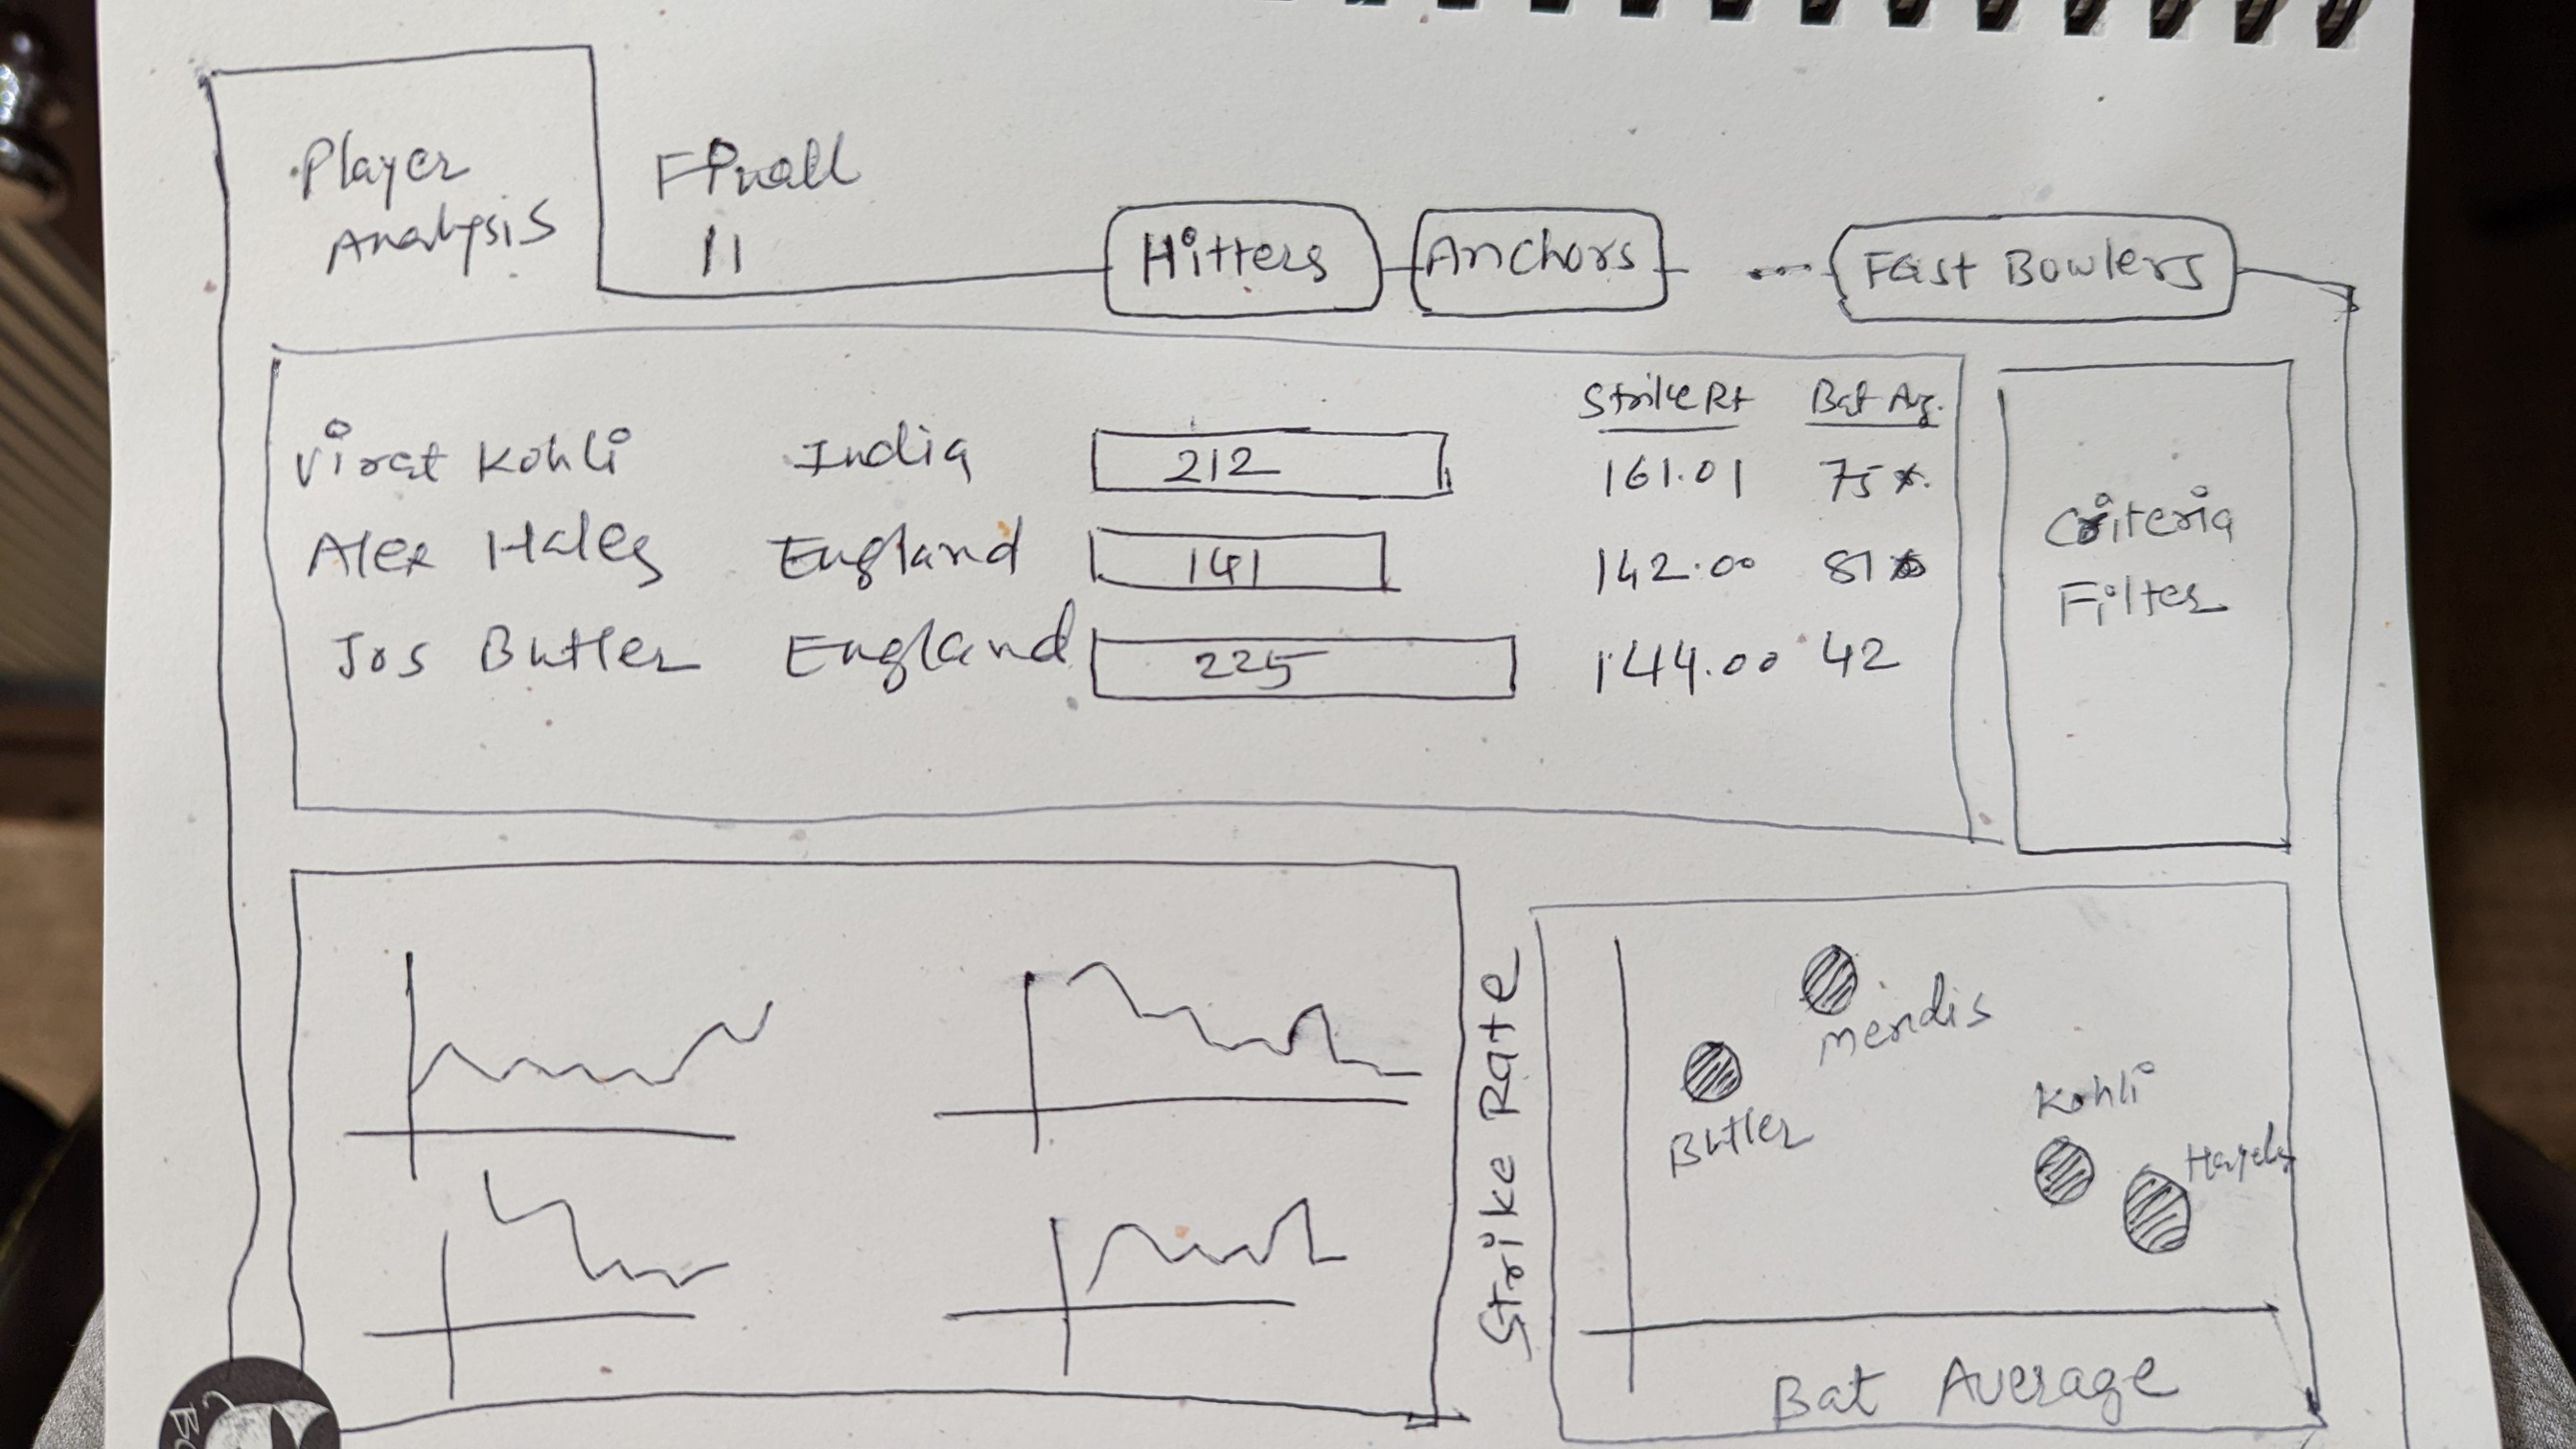 Player
Analysis
Final
11
Hitters
Anchors
Fast Bowlers
Strike Rt
Bat Avg.
Virat Kohli
India
212
161.01
75*.
Alex Hales
England
141
142.00
81*
Jos Butler
England
225
144.00
42
Criteria
Filter
Strike Rate
Mendis
Butler
Kohli
Bat Average